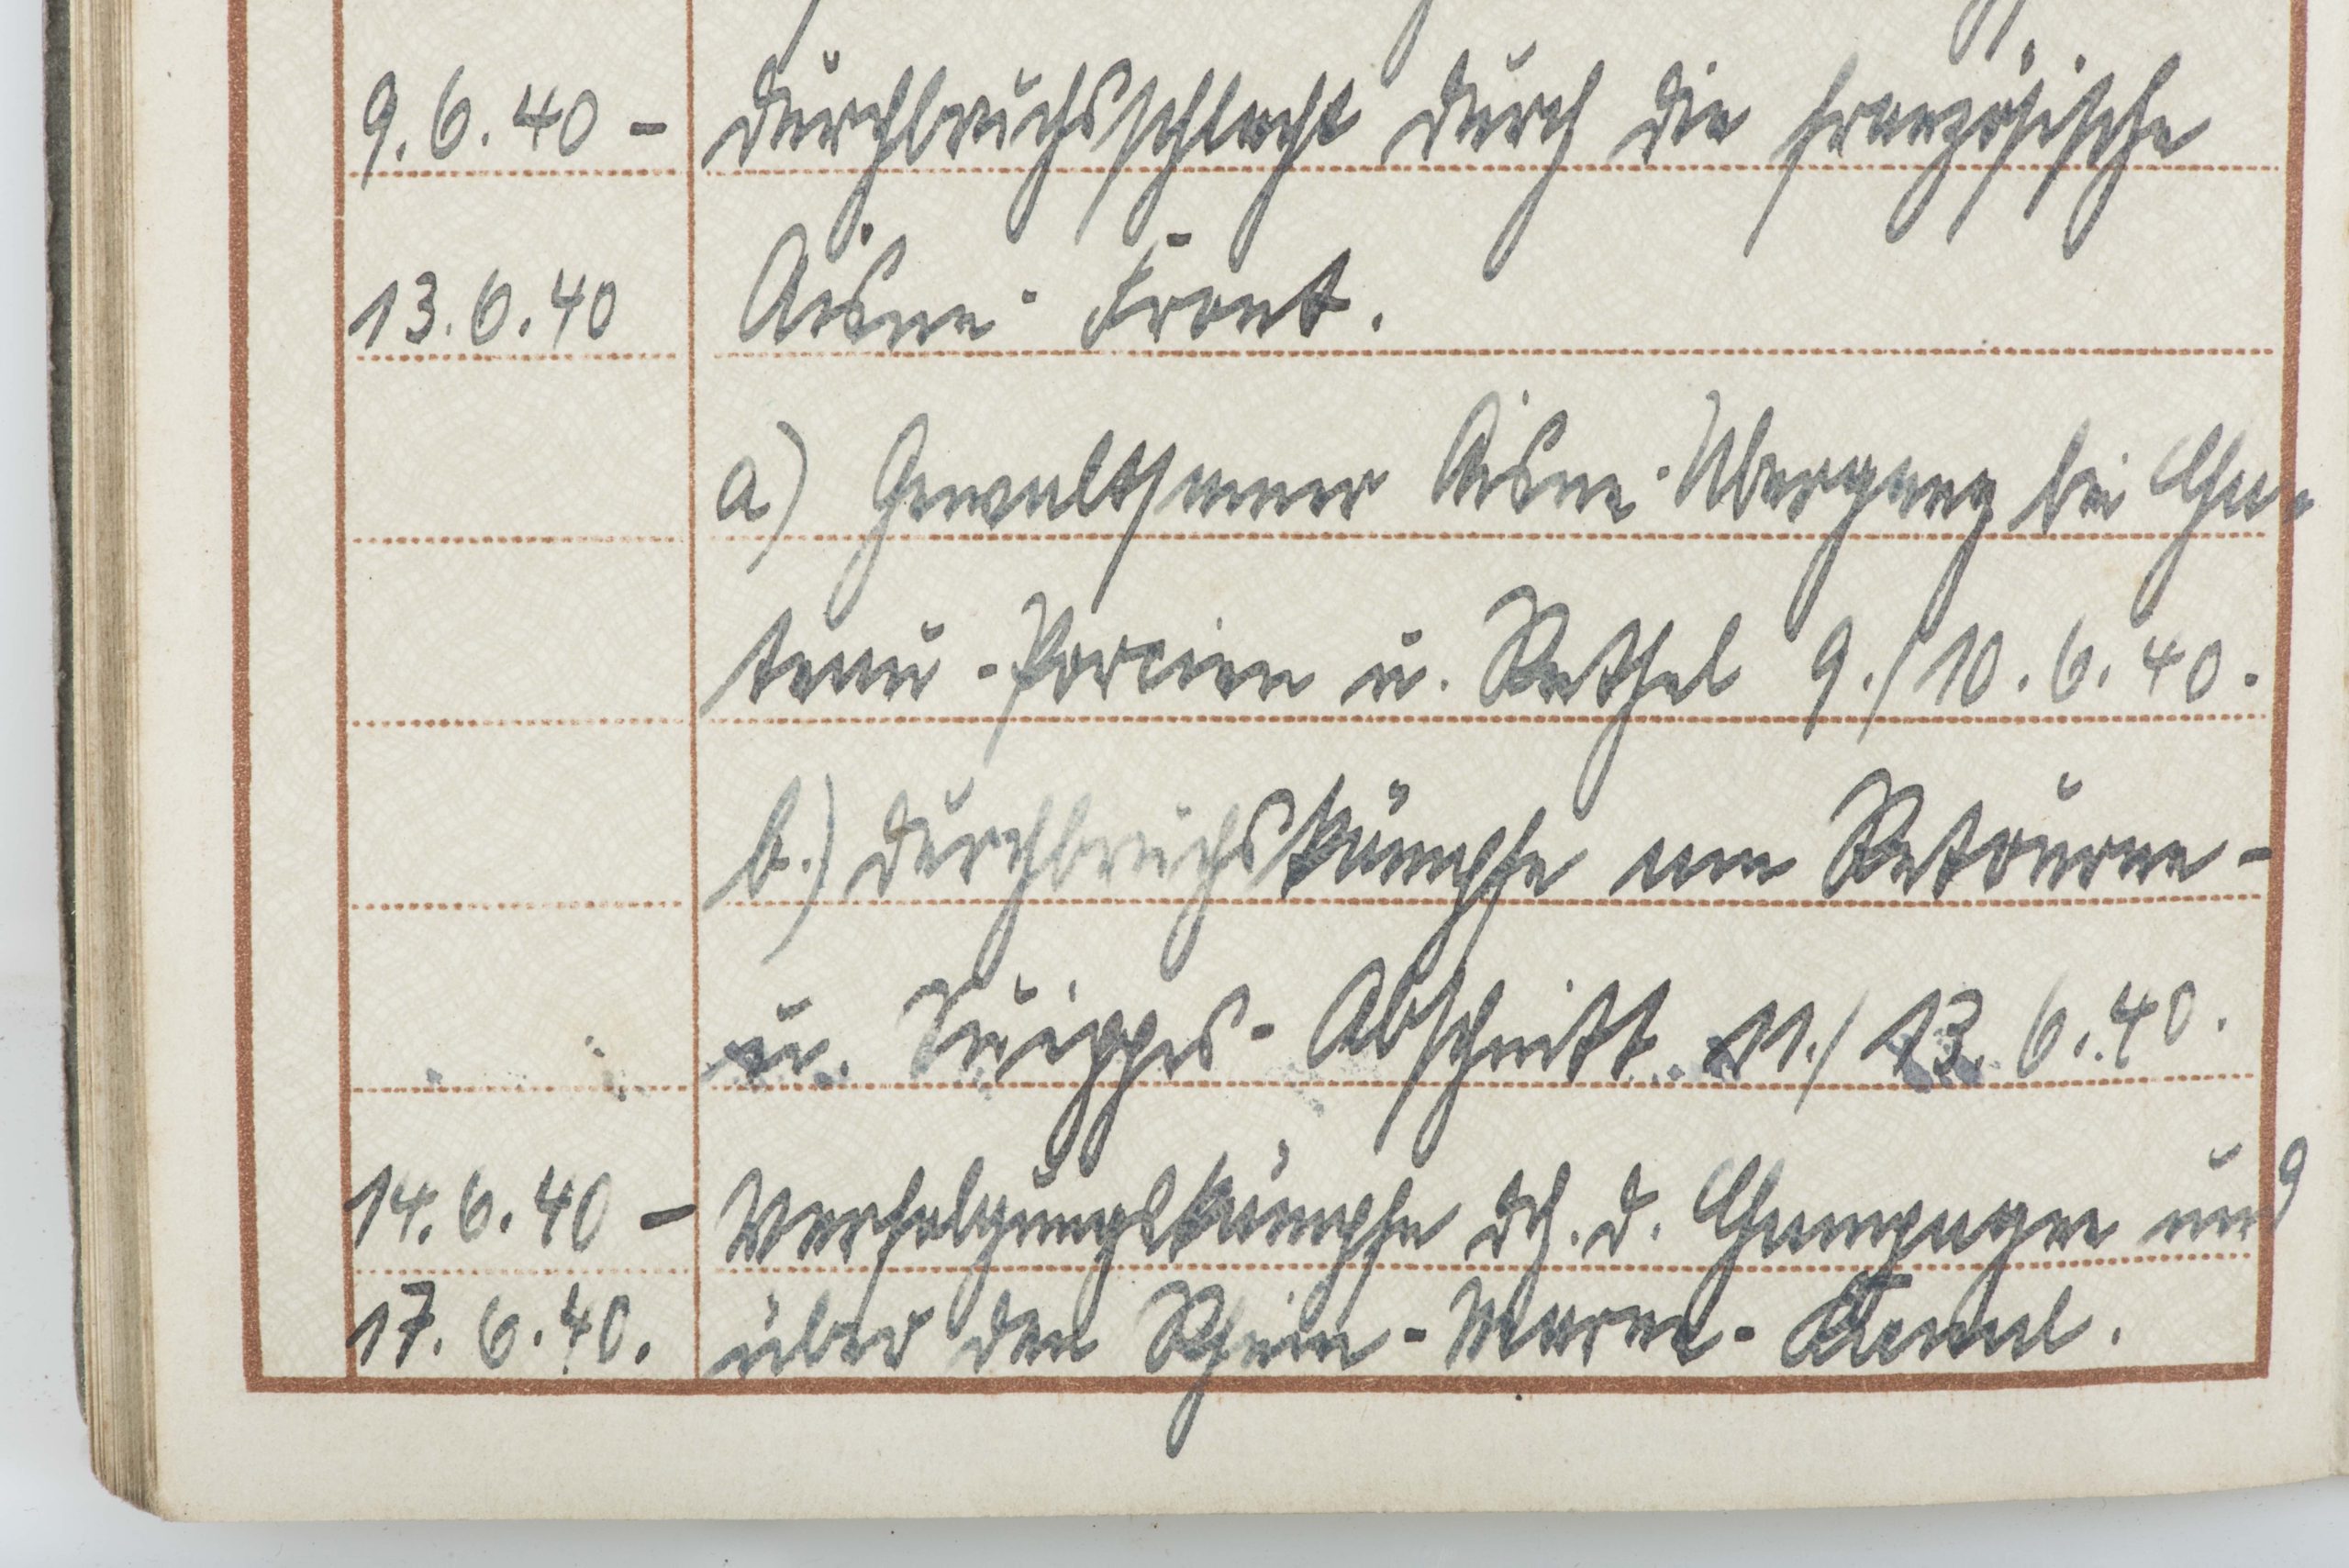 9.6.40 - Durchbruchsschlacht durch die französische
13.6.40 Aisne-Front.
a) Gewaltsamer Aisne-Übergang bei Cha-
teau-Porcien u. Rethel 9./10.6.40.
b.) Durchbruchskämpfe um Retourne-
u. Suippes-Abschnitt 11./13.6.40.
14.6.40 - Verfolgungskämpfe dch. d. Champagne und
17.6.40. über den Rhein-Marne-Kanal.